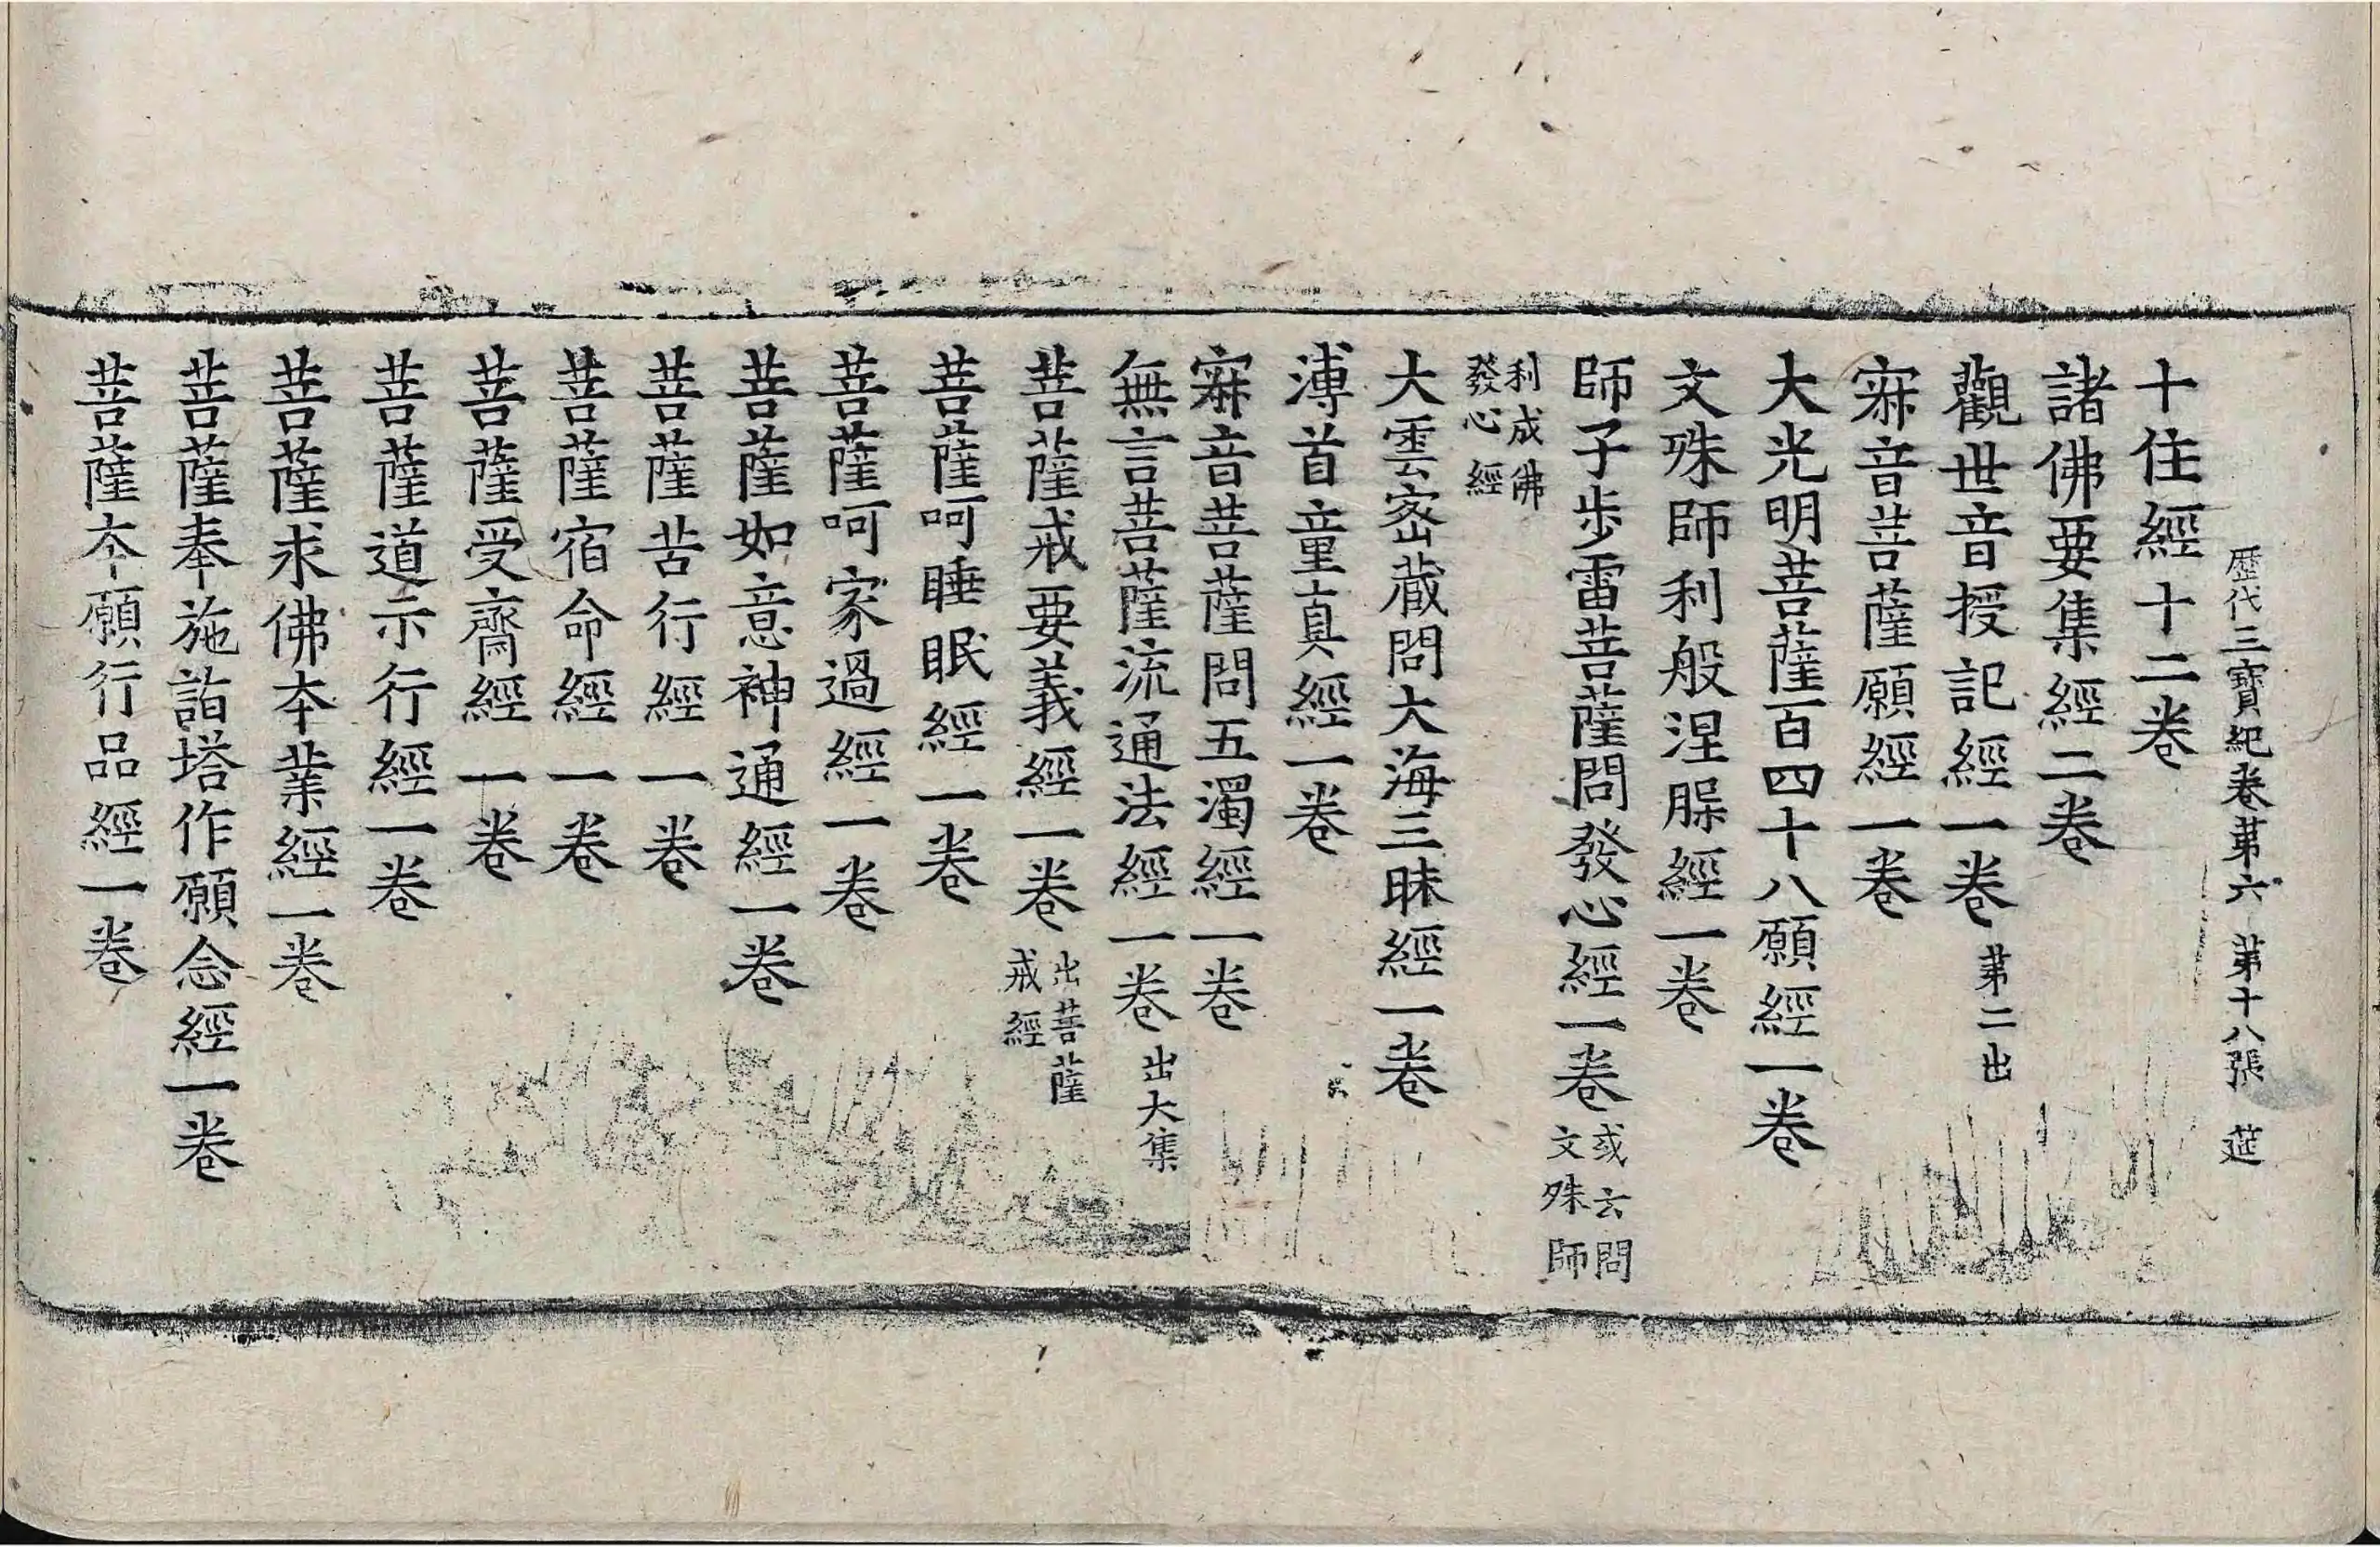 歷代三寶紀卷第六 第十八張 莚
十住經十二卷
諸佛要集經二卷
觀世音授記經一卷 第二出
寂音菩薩願經一卷
大光明菩薩百四十八願經一卷
文殊師利般涅槃經一卷
師子步雷菩薩問發心經一卷 或云問文殊師
利成佛發心經
大雲密藏問大海三昧經一卷
溥首童真經一卷
寂音菩薩問五濁經一卷
無言菩薩流通法經一卷 出大集
菩薩戒要義經一卷 出菩薩戒經
菩薩呵睡眠經一卷
菩薩呵家過經一卷
菩薩如意神通經一卷
菩薩苦行經一卷
菩薩宿命經一卷
菩薩受齋經一卷
菩薩道示行經一卷
菩薩求佛本業經一卷
菩薩奉施詣塔作願念經一卷
菩薩本願行品經一卷